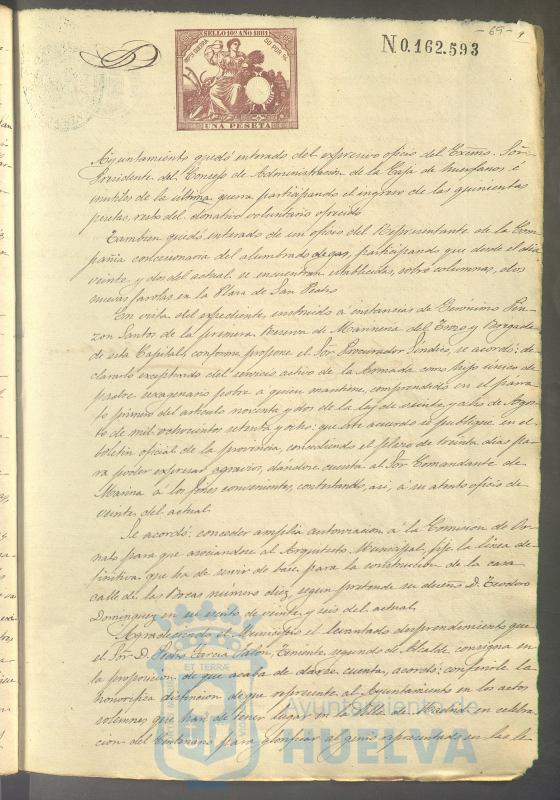 - 69 -
SELLO 10º AÑO 1881
IMPTO GUERRA
50 POR %
UNA PESETA
N 0.162.593
Ayuntamiento quedó enterado del expresivo oficio del Excmo. Señor
Presidente del Consejo de Administracion de la Caja de huerfanos é
inutiles de la última guerra participando el ingreso de las quinientas
pesetas, resto del donativo voluntario ofrecido
Tambien quedó enterado de un oficio del Representante de la Com-
pañia concesionaria del alumbrado de gas, participando que desde el dia
veinte y dos del actual se encuentran establecidas, sobre columnas, dos
nuevas farolas en la Plaza de San Pedro
En vista del expediente, instruido á instancias de Gerónimo Pin-
zon Santos de la primera Reserva de Marineria del Trozo y Brigada
de esta Capital, conforme propone el Sor. Procurador Síndico, se acordó: de-
clararlo exceptuado del servicio activo de la Armada como hijo único de
padre sexagenario pobre á quien mantiene, comprendido en el parra-
fo primero del articulo noventa y dos de la ley de veinte y ocho de Agos-
to de mil ochocientos setenta y ocho: que este acuerdo se publique en el
boletin oficial de la provincia, concediendo el plazo de treinta dias pa-
ra poder expresar agravios, dándose cuenta al Sor. Comandante de
Marina á los fines convenientes, contestando, asi, á su atento oficio de
veinte del actual.
Se acordó: conceder amplia autorizacion á la Comision de Or-
nato para que asociandose al Arquitecto Municipal, fije la línea de-
finitiva que ha de servir de base para la construccion de la casa
calle de las Bocas número diez, segun pretende su dueño D. Teodoro
Dominguez en su escrito de veinte y seis del actual.
Agradeciendo el Municipio el levantado desprendimiento que
el Sor. D. Pedro Garcia Jalon, Teniente segundo de Alcalde, consigna en
la proposicion de que acaba de darse cuenta, acordó: conferirle la
honorífica distincion de que represente al Ayuntamiento en los actos
solemnes que han de tener lugar en la Villa de Madrid en celebra-
cion del Centenario para glorificar al genio representado en las le-
ET TERRÆ
Ayuntamiento de
HUELVA